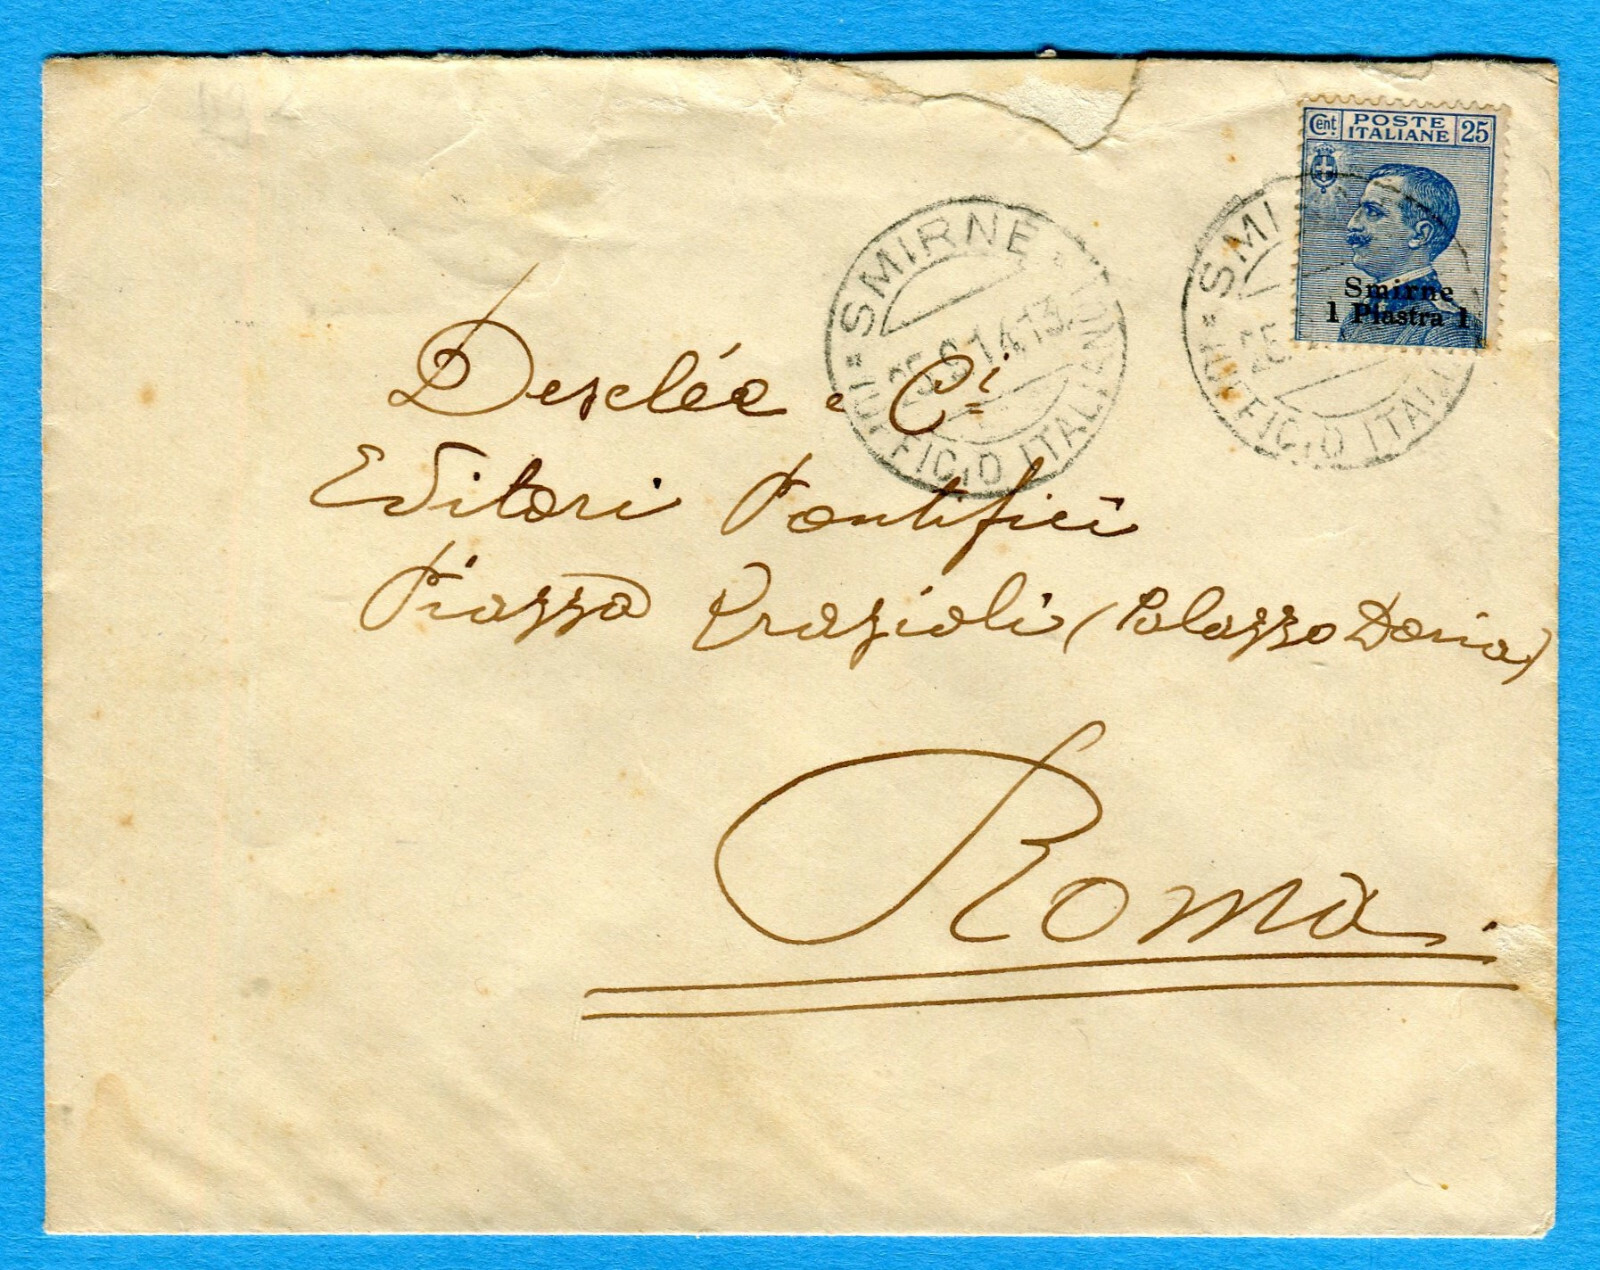 Cent. POSTE ITALIANE 25
Smirne
1 Piastra 1
SMIRNE
UFFICIO ITALIANO
SMI
UFFICIO ITALI
Desclée e Ci
Editori Pontifici
Piazza Grazioli (Palazzo Doria)
Roma.